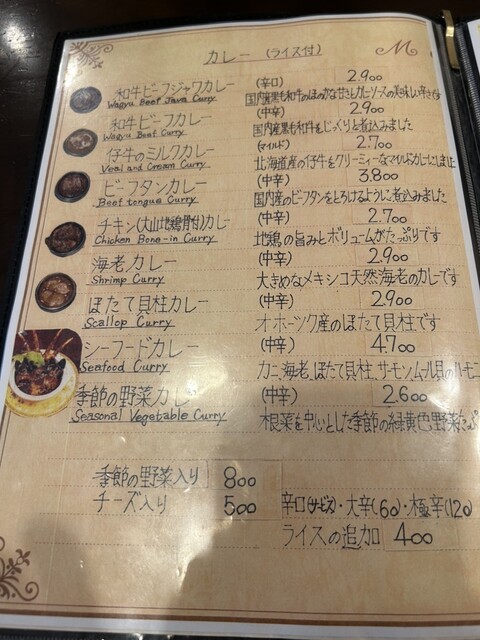 カレー (ライス付)
M
和牛ビーフジャワカレー (辛口) 2.900
Wagyu Beef Java Curry
和牛ビーフカレー (中辛) 2.900
Wagyu Beef Curry 国内産黒毛和牛をじっくり煮込みました
仔牛のミルクカレー (マイルド) 2.700
Veal and Cream Curry 北海道産の仔牛をクリーミーなマイルドカレーにしました
ビーフタンカレー (中辛) 3.800
Beef tongue Curry 国内産のビーフタンをとろけるように煮込みました
チキン(大山地鶏骨付)カレー (中辛) 2.700
Chicken Bone-in Curry 地鶏の旨みとボリュームがたっぷりです
海老カレー (中辛) 2.900
Shrimp Curry 大きめなメキシコ天然海老のカレーです
ほたて貝柱カレー (中辛) 2.900
Scallop Curry オホーツク産のほたて貝柱です
シーフードカレー (中辛) 4.700
Seafood Curry カニ、海老、ほたて貝柱、サーモン、ムール貝のハーモニ
季節の野菜カレー (中辛) 2.600
Seasonal Vegetable Curry 根菜を中心とした季節の緑黄色野菜たっぷ
季節の野菜入り 800
チーズ入り 500 辛口(サービス)・大辛(60)・極辛(120)
ライスの追加 400